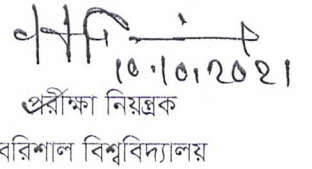 10.10.2021
পরীক্ষা নিয়ন্ত্রক
বরিশাল বিশ্ববিদ্যালয়